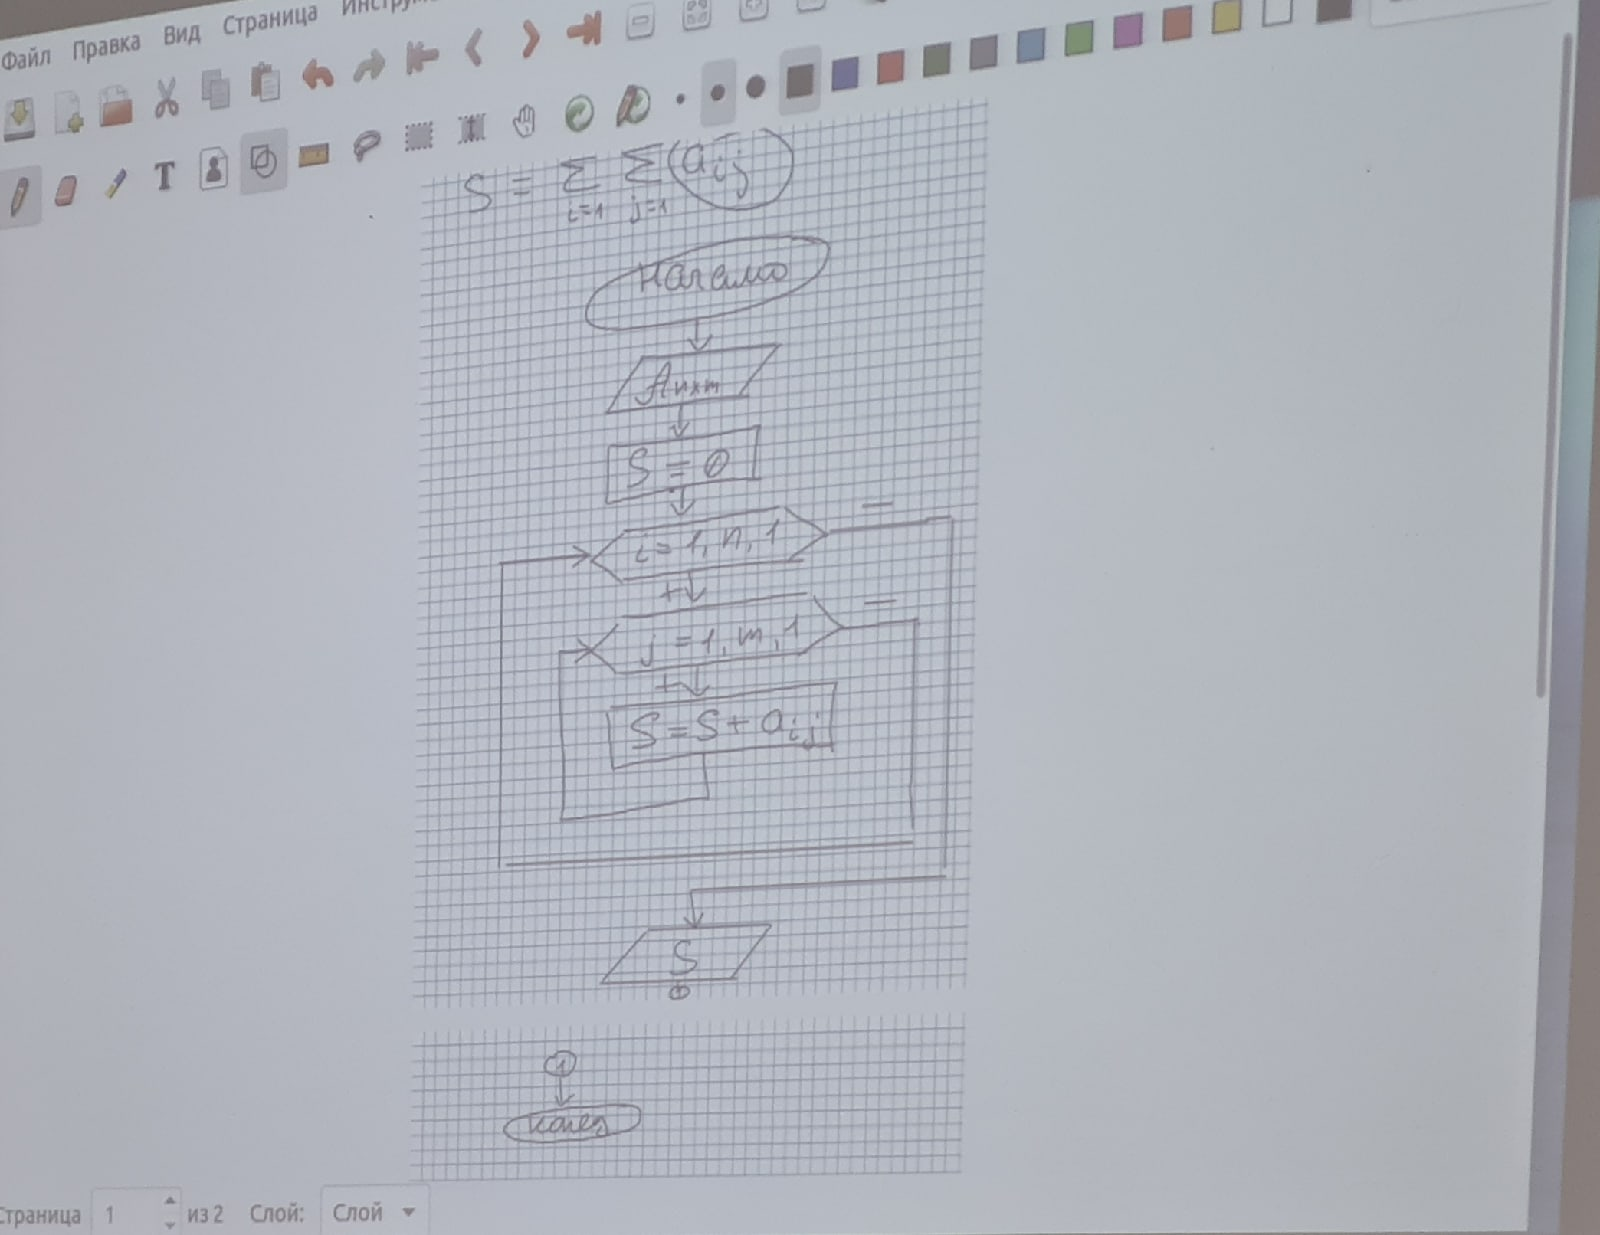 Файл Правка Вид Страница
T
S = Σ Σ a i j
i=1 j=1
Начало
Anxm
S = 0
i = 1, n, 1
+
j = 1, m, 1
+
S = S + a i j
S
1
конец
Страница 1 из 2 Слой: Слой